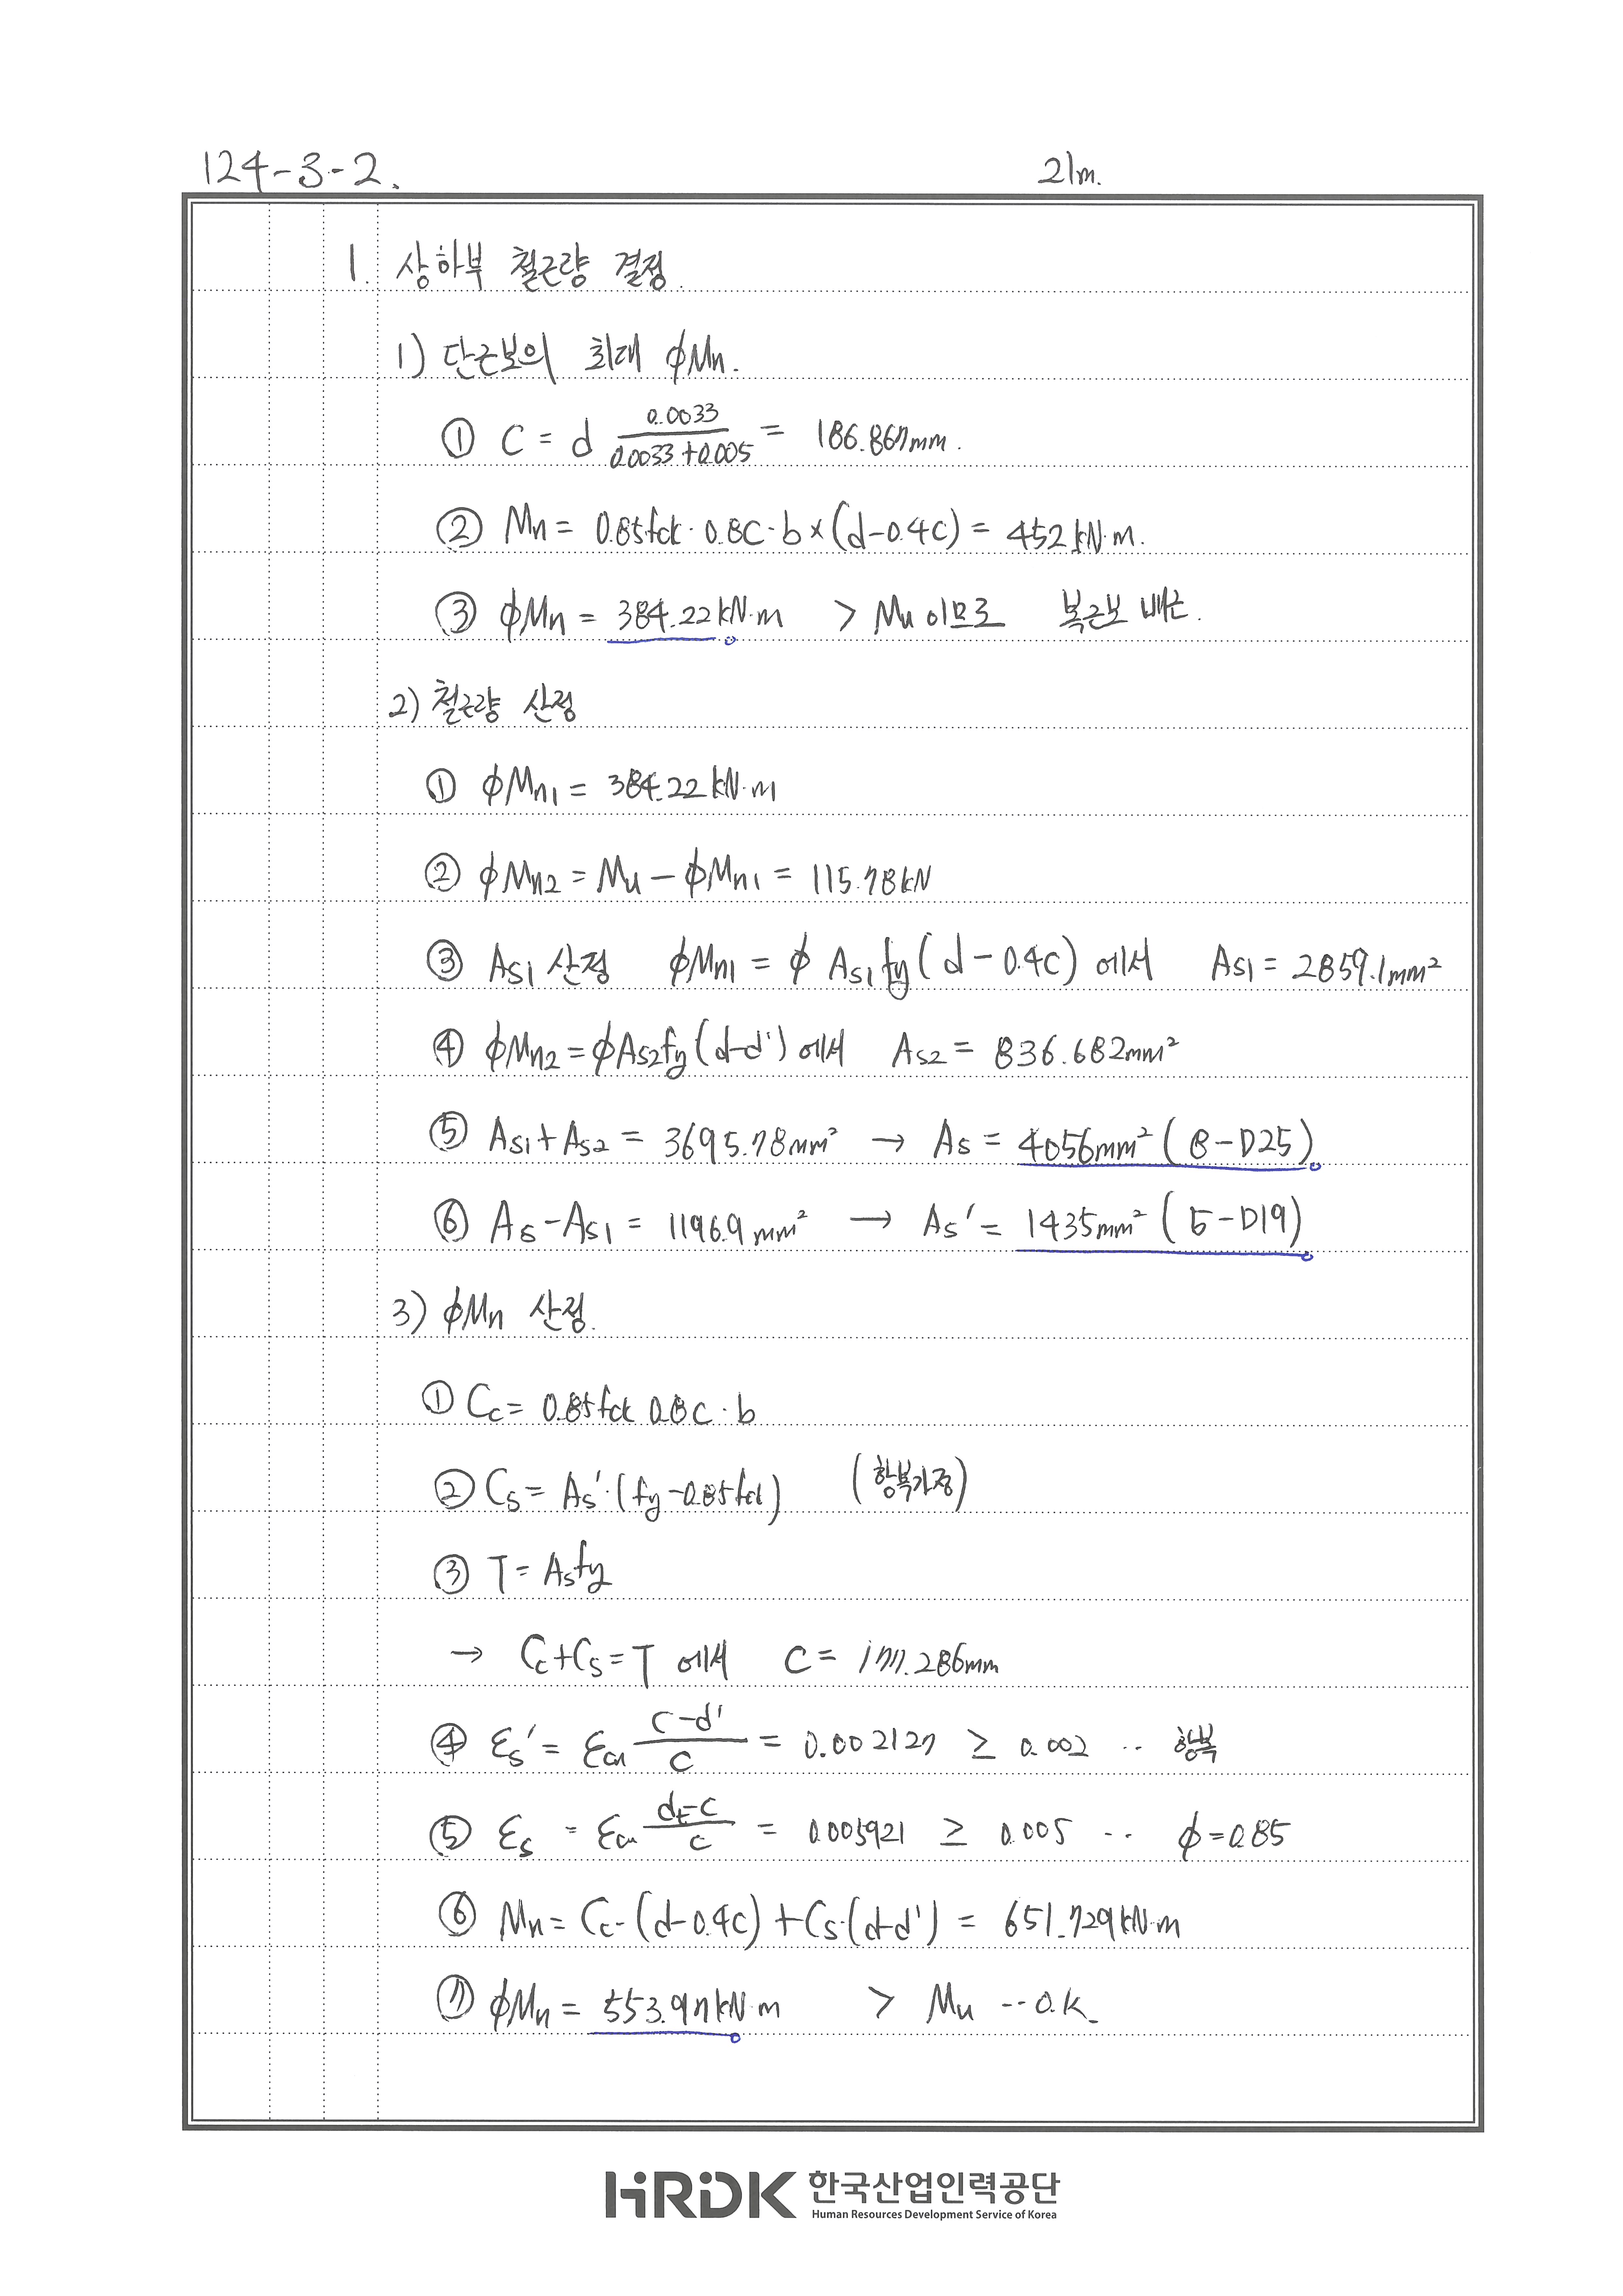 124-3-2.
21m.
1. 상하부 철근량 결정.
1) 단근보의 최대 ϕMn.
① C = d 0.0033/(0.0033+0.005) = 186.867mm.
② Mn = 0.85fck · 0.8C · b × (d-0.4C) = 452kN·m.
③ ϕMn = 384.22kN·m > Mu 이므로 복근보 배근.
2) 철근량 산정
① ϕMn1 = 384.22kN·m
② ϕMn2 = Mu - ϕMn1 = 115.78kN
③ As1 산정 ϕMn1 = ϕ As1 fy (d - 0.4C) 에서 As1 = 2859.1mm²
④ ϕMn2 = ϕAs2fy (d-d') 에서 As2 = 836.682mm²
⑤ As1+As2 = 3695.78mm² → As = 4056mm² (8-D25)
⑥ As-As1 = 1196.9mm² → As' = 1435mm² (5-D19)
3) ϕMn 산정.
① Cc = 0.85fck 0.8C · b
② Cs = As'·(fy-0.85fck) (항복가정)
③ T = Asfy
→ Cc+Cs = T 에서 C = 177.286mm
④ εs' = εcu (C-d')/C = 0.002127 ≥ 0.002 ·· 항복
⑤ εs = εcu (dt-C)/C = 0.005921 ≥ 0.005 ·· ϕ=0.85
⑥ Mn = Cc·(d-0.4C) + Cs·(d-d') = 651.729kN·m
⑦ ϕMn = 553.97kN·m > Mu --O.K.
HRDK 한국산업인력공단
Human Resources Development Service of Korea